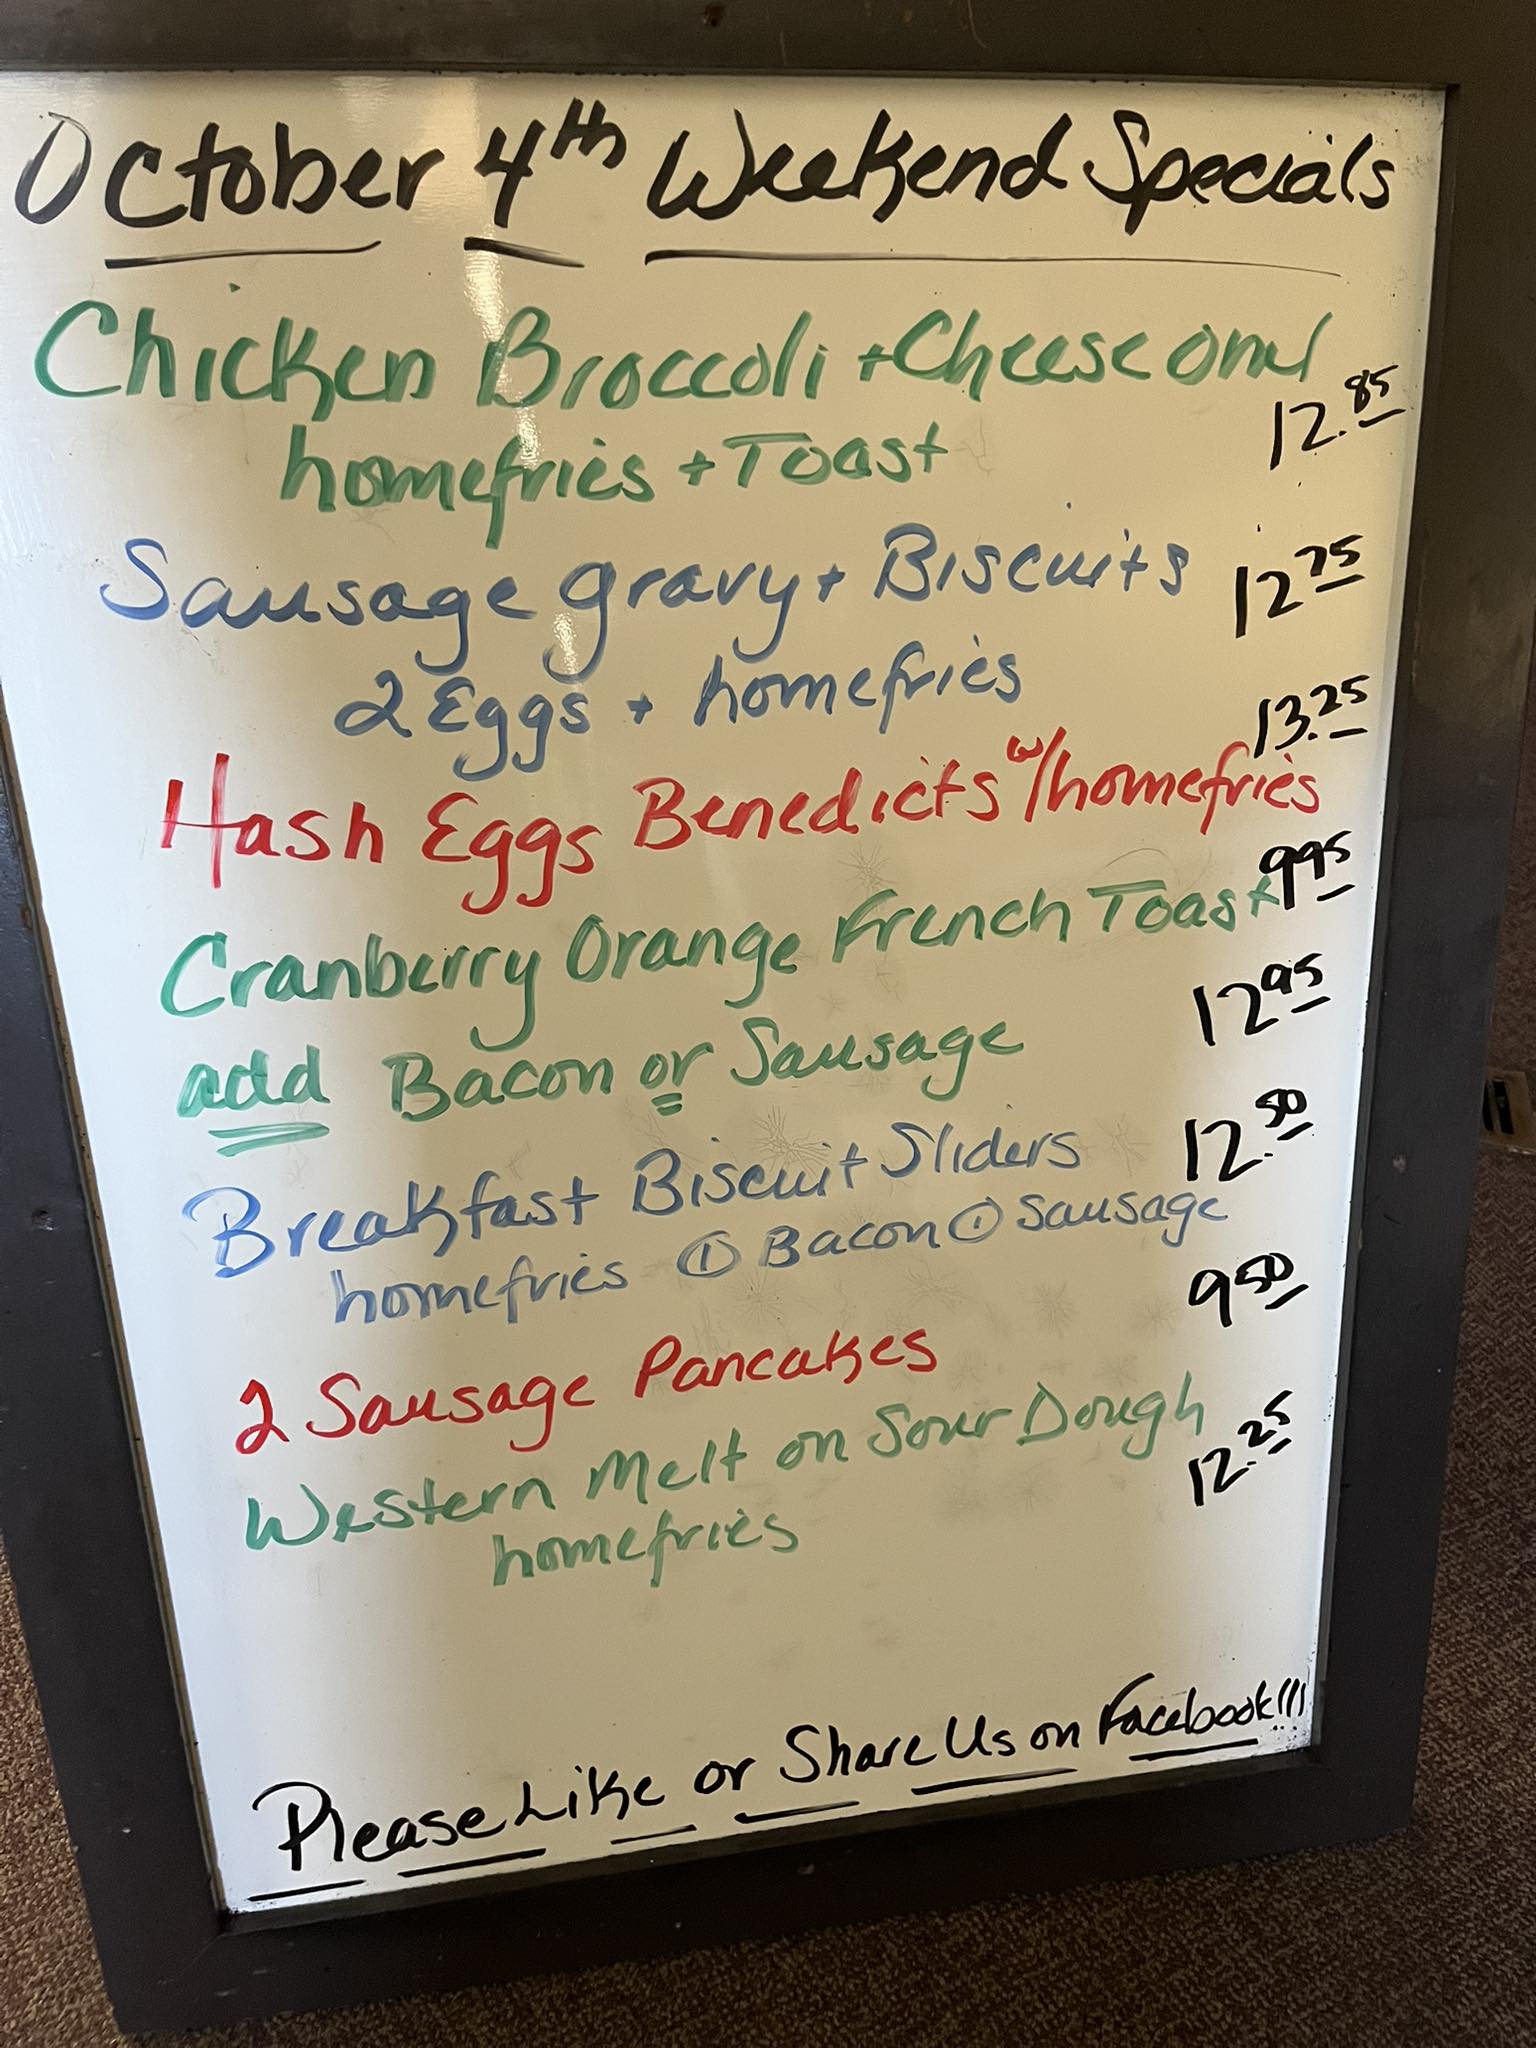 October 4th Weekend Specials
Chicken Broccoli + Cheese oml
homefries + Toast 12.85
Sausage gravy + Biscuits 12 75
2 Eggs + homefries
Hash Eggs Benedicts w/homefries 13.25
Cranberry Orange French Toast 9 95
add Bacon or Sausage 12 95
Breakfast Biscuit Sliders 12.50
homefries ① Bacon ① Sausage
2 Sausage Pancakes 9 50
Western Melt on Sour Dough 12.25
homefries
Please Like or Share Us on Facebook!!!